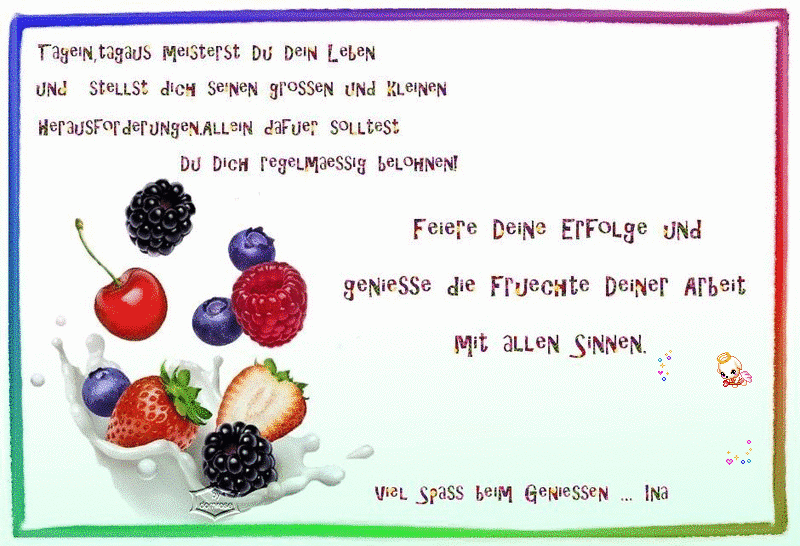 Tagein,tagaus meisterst Du Dein Leben
und stellst dich seinen grossen und kleinen
Herausforderungen.Allein dafuer solltest
Du Dich regelmaessig belohnen!
Feiere Deine Erfolge und
geniesse die Fruechte Deiner Arbeit
mit allen Sinnen.
Viel Spass beim Geniessen ... Ina